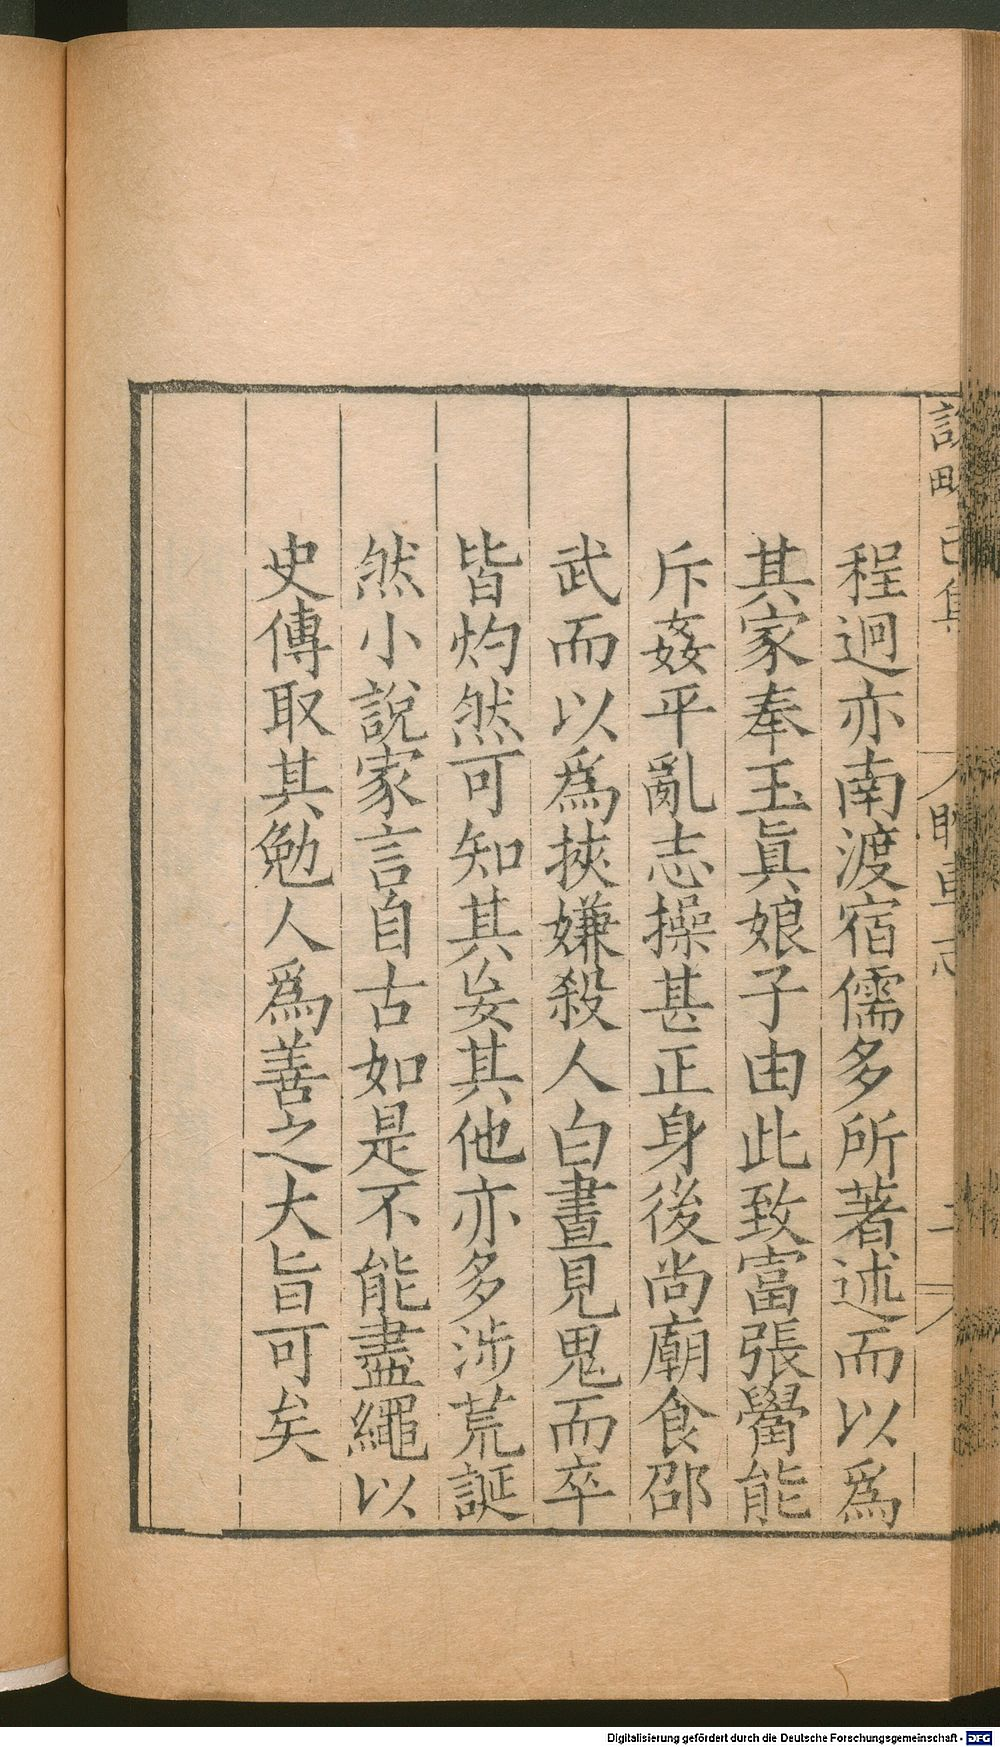 程迥亦南渡宿儒多所著述而以爲
其家奉玉眞娘子由此致富張觷能
斥姦平亂志操甚正身後尚廟食邵
武而以爲挾嫌殺人白晝見鬼而卒
皆灼然可知其妄其他亦多涉荒誕
然小說家言自古如是不能盡繩以
史傳取其勉人爲善之大旨可矣
Digitalisierung gefördert durch die Deutsche Forschungsgemeinschaft - DFG